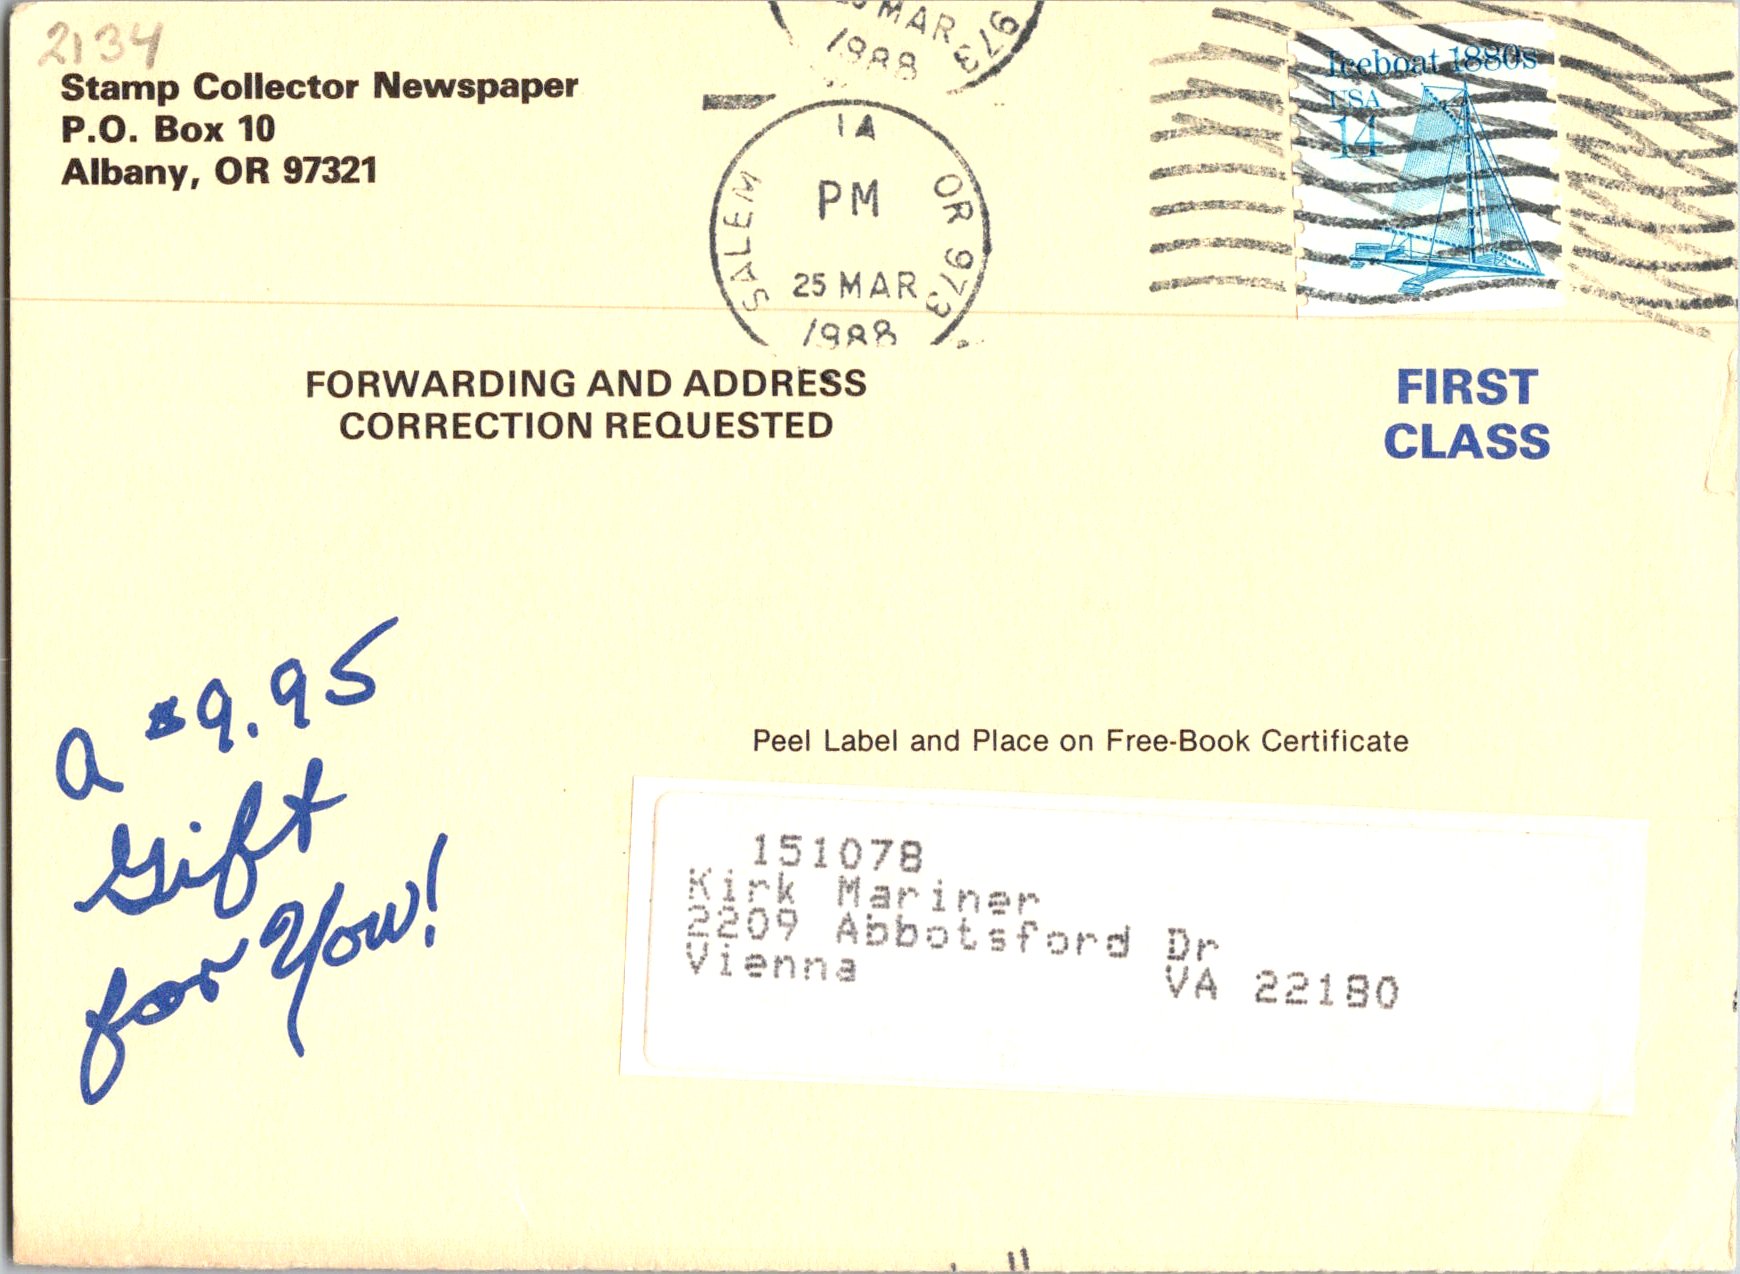 2134
Stamp Collector Newspaper
P.O. Box 10
Albany, OR 97321
MAR 973
1988
1A
PM
SALEM OR 973
25 MAR
1988
Iceboat 1880s
USA
14
FORWARDING AND ADDRESS
CORRECTION REQUESTED
FIRST
CLASS
a $9.95
Gift
for You!
Peel Label and Place on Free-Book Certificate
151078
Kirk Mariner
2209 Abbotsford Dr
Vienna VA 22180